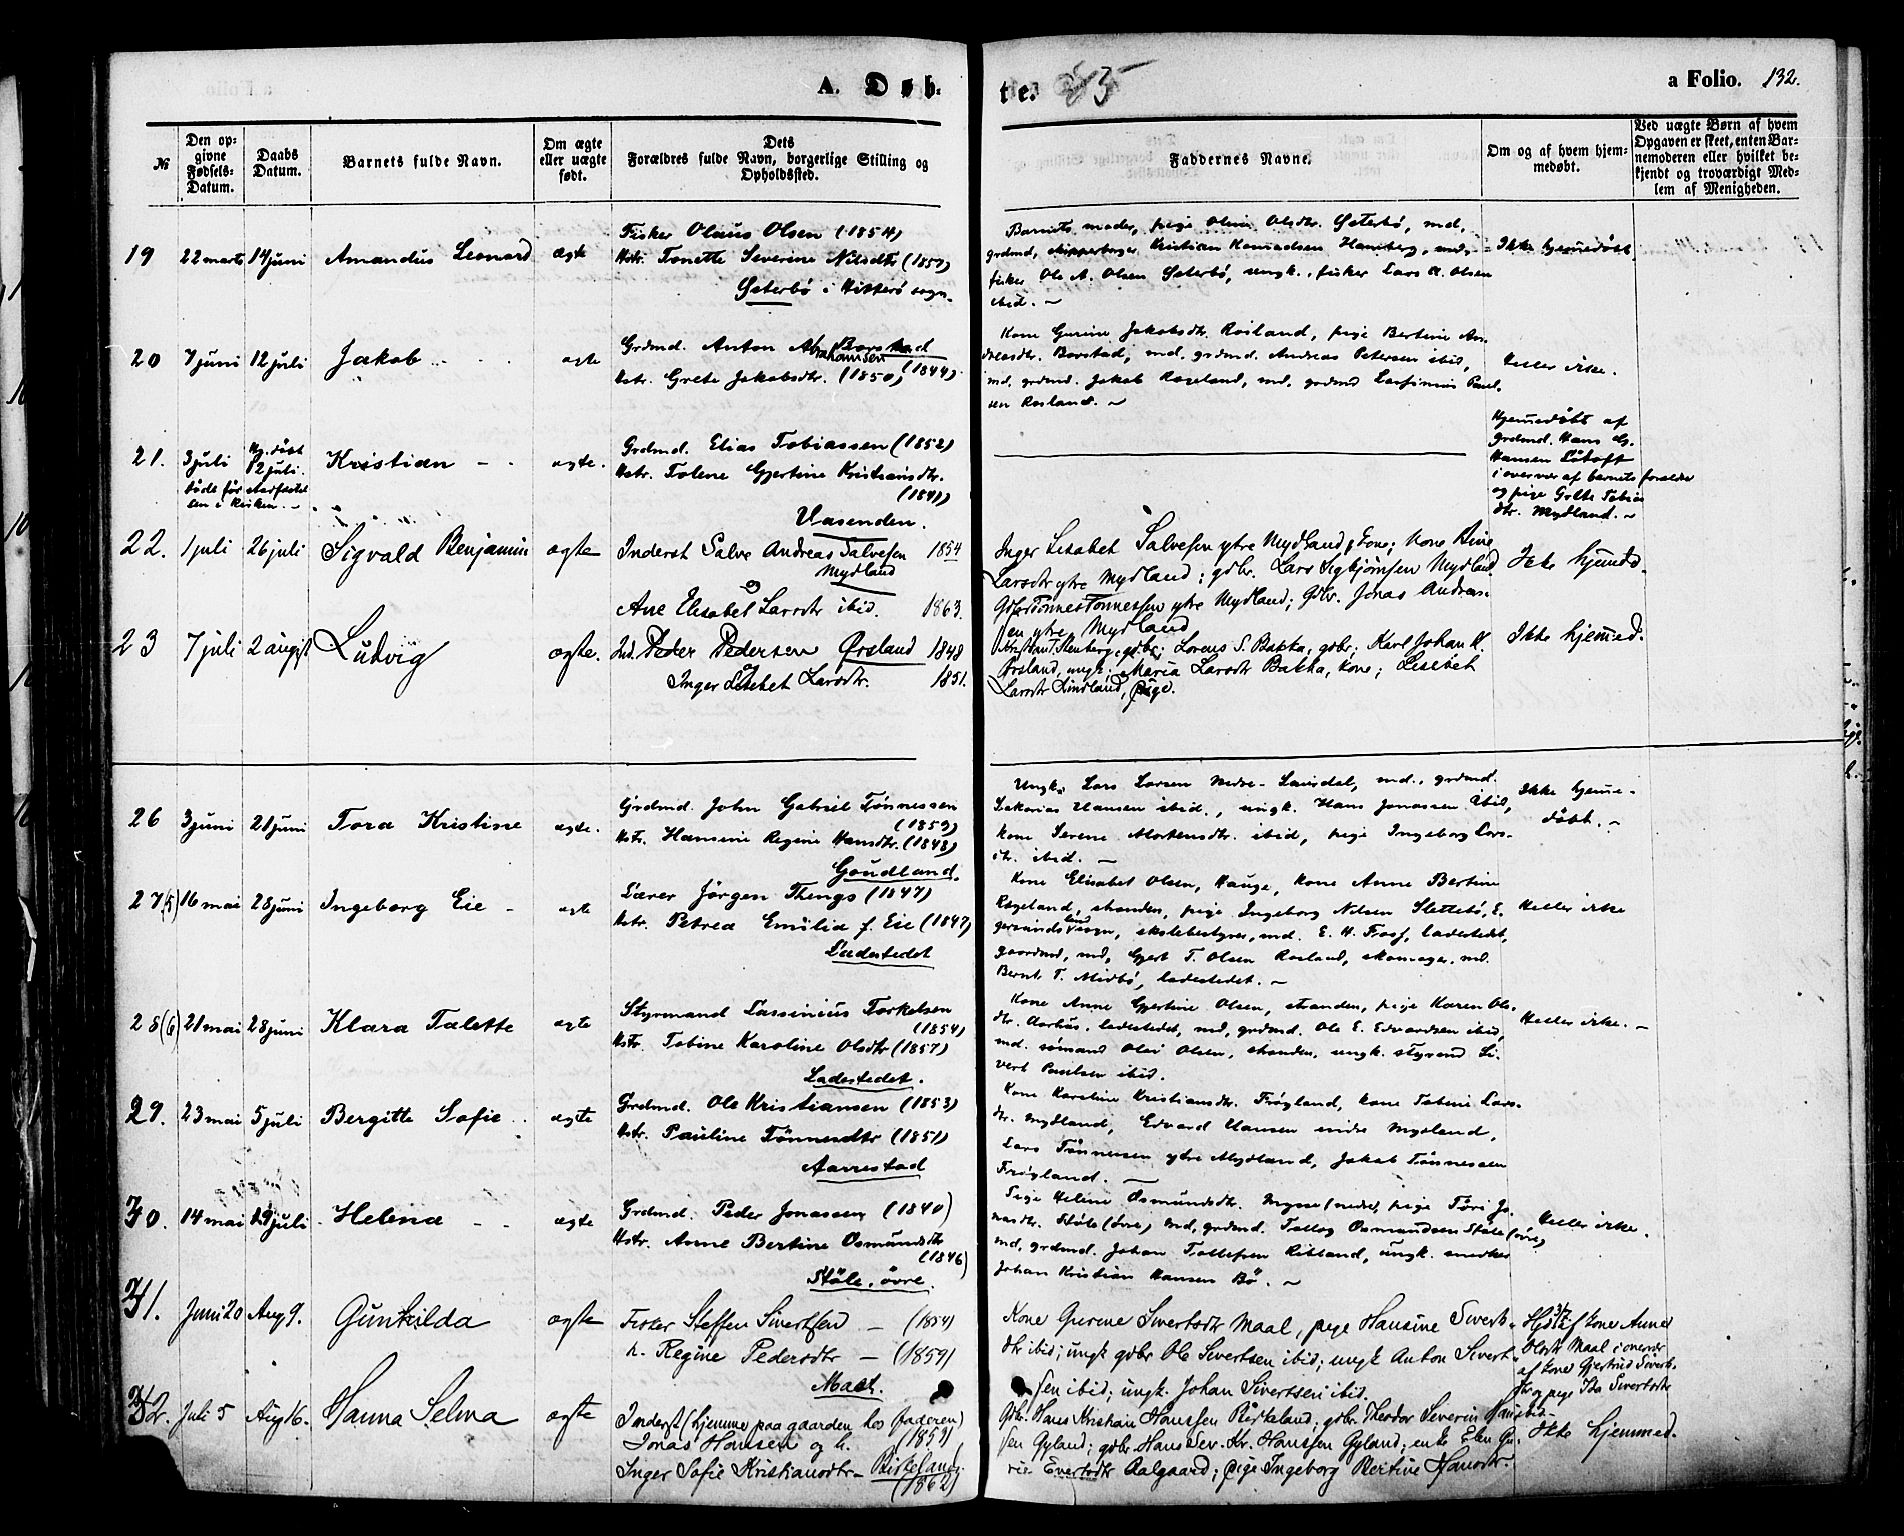 A. Døb-
te. 85
a Folio. 132.
№
Den op-
givne
Fødsels-
Datum.
Daabs
Datum.
Barnets fulde Navn.
Om ægte
eller uægte
født.
Dets
Forældres fulde Navn, borgerlige Stilling og
Opholdssted.
Faddernes Navne.
Om og af hvem hjem-
medøbt.
Ved uægte Børn af hvem
Opgaven er skeet, enten Bar-
nemoderen eller hvilket be-
kjendt og troværdigt Med-
lem af Menigheden.
19 22 marts 14 juni Amandus Leonard ægte
Fisker Olaus Olsen (1854)
Hstr. Tonette Severine Nilsdtr
Østerbø i Hitterø sogn.
Barnets moder, pige Oline Olsdtr. Østerbø, md,
grdmd, skipperborger Kristian Hamberg, md,
fisker Ole A. Olsen Østerbø, ungk., fisker Lars A. Olsen
ibid. –
Ikke hjemmedøbt
20 7 juni 12 juli Jakob ægte
Grdmd. Anton Abrahamsen Borstad
(1844)
Hstr. Grete Jakobsdtr. (1850)
Kone Gurine Jakobsdtr. Rosland, pige Bertine An-
dreasdtr. Borstad, md. grdmd. Andreas Petersen ibid,
md. grdmd. Jakob Rageland, md. grdmd Paul-
sen Rosland. –
Heller ikke.
21. 3 juli Hj. døbt 12 juli. Kristian – – ægte.
døde før stadfæstel-
sen i Kirken. –
Grdmd. Elias Tobiassen (1852)
Hstr. Tolene Gjertine Kristiansdtr.
Vasenden.
Hjemmedøbt af
grdmd. Hans
Hansen
i overvær af barnets forældre
og pige Tobias-
dtr. Mydland. –
22. 1 juli 26 juli Sigvald Benjamin ægte
Inderst Salve Andreas Salvesen 1854
Mydland
Ane Elisabet Larsdtr ibid. 1863.
Inger Lisabet Salvesen ytre Mydland, kone; Kone Aine
Larsdtr ytre Mydland; gdbr. Lars Sigbjørnsen Mydland
Gdbr Tønnes Tønnessen ytre Mydland; Gdbr. Jonas Andreas-
sen ytre Mydland
Ikke hjemmd.
23 7 juli 2 august Ludvig ægte.
Ind. Peder Pedersen Ørsland 1848
Inger Lisebet Larsdtr. 1851.
Kristian Stenberg, gdbr; Lorens S. Bakka, gdbr; Karl Johan K.
Ørsland, ungk; Maria Larsdtr Bakka, kone; Lisebet
Larsdtr Lindland, pige.
Ikke hjemmed.
26 3 juni 21 juni Tora Kristine ægte.
Grdmd. John Gabriel Tønnessen
(1859)
Hstr. Hansine Regine Hansdtr. (1848)
Goudland.
Ungk. Lars Larsen Nedre-Saurdal, md., grdmd.
Sakarias Hansen ibid., ungk. Hans Jonassen ibid,
kone Serene Mortensdtr. ibid, pige Ingeborg Lars-
dtr. ibid. –
Ikke hjemme-
døbt. –
27(5) 16 mai 28 juni Ingeborg Eie – ægte
Lærer Jørgen Thengs (1847)
Hstr. Petrea Emilia f. Eie (1847)
Ladestedet
Kone Elisabet Olsen, Hauge, kone Anne Bertine
Rageland, stranden, pige Ingeborg Nilsen Slettebø, E-
gersunds landsogn, skolebestyrer, md. E. H. Trosf, ladestedet,
gaardmd, md, Gjert T. Olsen Rosland, skomager, md.
Bernt T. Midbø, ladestedet. –
Heller ikke
28(6) 21 mai 28 juni Klara Talette ægte
Styrmand Lassinius Torkelsen
(1854)
Hstr. Tobine Karoline Olsdtr (1857)
Ladestedet.
Kone Anne Gjertine Olsen, stranden, pige Karen Ols-
dtr. Aarhus, ladestedet, md, grdmd. Ole E. Edvardsen ibid,
md. sømand Olai Olsen, stranden, ungk. styrmd Si-
vert Paulsen ibid.
Heller ikke. –
29. 23 mai 5 juli Bergitte Sofie ægte
Grdmd. Ole Kristiansen (1853)
Hstr. Pauline Tønnesdtr (1851)
Aarrestad
Kone Karoline Kristiansdtr. Frøyland, kone Tobine Lars-
dtr. Mydland, Edvard Hansen indre Mysland,
Lars Tønnesen ytre Mydland, Jakob Tønnessen
Frøyland. –
30. 14 mai 19 juli Helena – – ægte
Grdmd. Peder Jonassen (1840)
Hstr. Anne Bertine Osmundsdtr
(1846)
Støle, øvre.
Pige Helene Osmundsdtr. (nedre), pige Tøri Jo-
nasdtr. Støle (øvre) md, grdmd. Tollag Osmundsen Støle (øvre)
md, grdmd. Johan Tollefsen Ritland, ungk. snedker
Johan Kristian Hansen Bø. –
Heller ikke.
31. Juni 20 Aug 9. Gunhilda ægte
Fisker Steffen Sivertsen – (1854)
h. Regine Pedersdtr – (1859)
Maal.
Kone Gurine Sivertsdtr Maal, pige Hansine Sverts-
dtr ibid; ungk gdbr Ole Sivertsen ibid; ungk Anton Sivert-
sen ibid; ungk. Johan Sivertsen ibid.
Hjdt af kone Anne
Olsdtr Maal i overvær
af kone Gjertrud Siverts-
dtr og pige Ida Sivertsdtr
32. Juli 5 Aug 16. Hanna Selma ægte
Inderst (hjemme paa gaarden hos faderen)
Jonas Hansen og h. (1859)
Inger Sofie Kristiansdtr – Birkeland.
(1862)
Gdbr. Hans Kristian Hanssen Birkeland; gdbr. Theodor Severin Hans-
sen Gyland; gdbr. Hans Sev. Kr. Hanssen Gyland; enke Elen Gu-
rie Evertsdtr Aalgaard; pige Ingeborg Bertine Hansdtr.
ibid –
Ikke hjemmed.